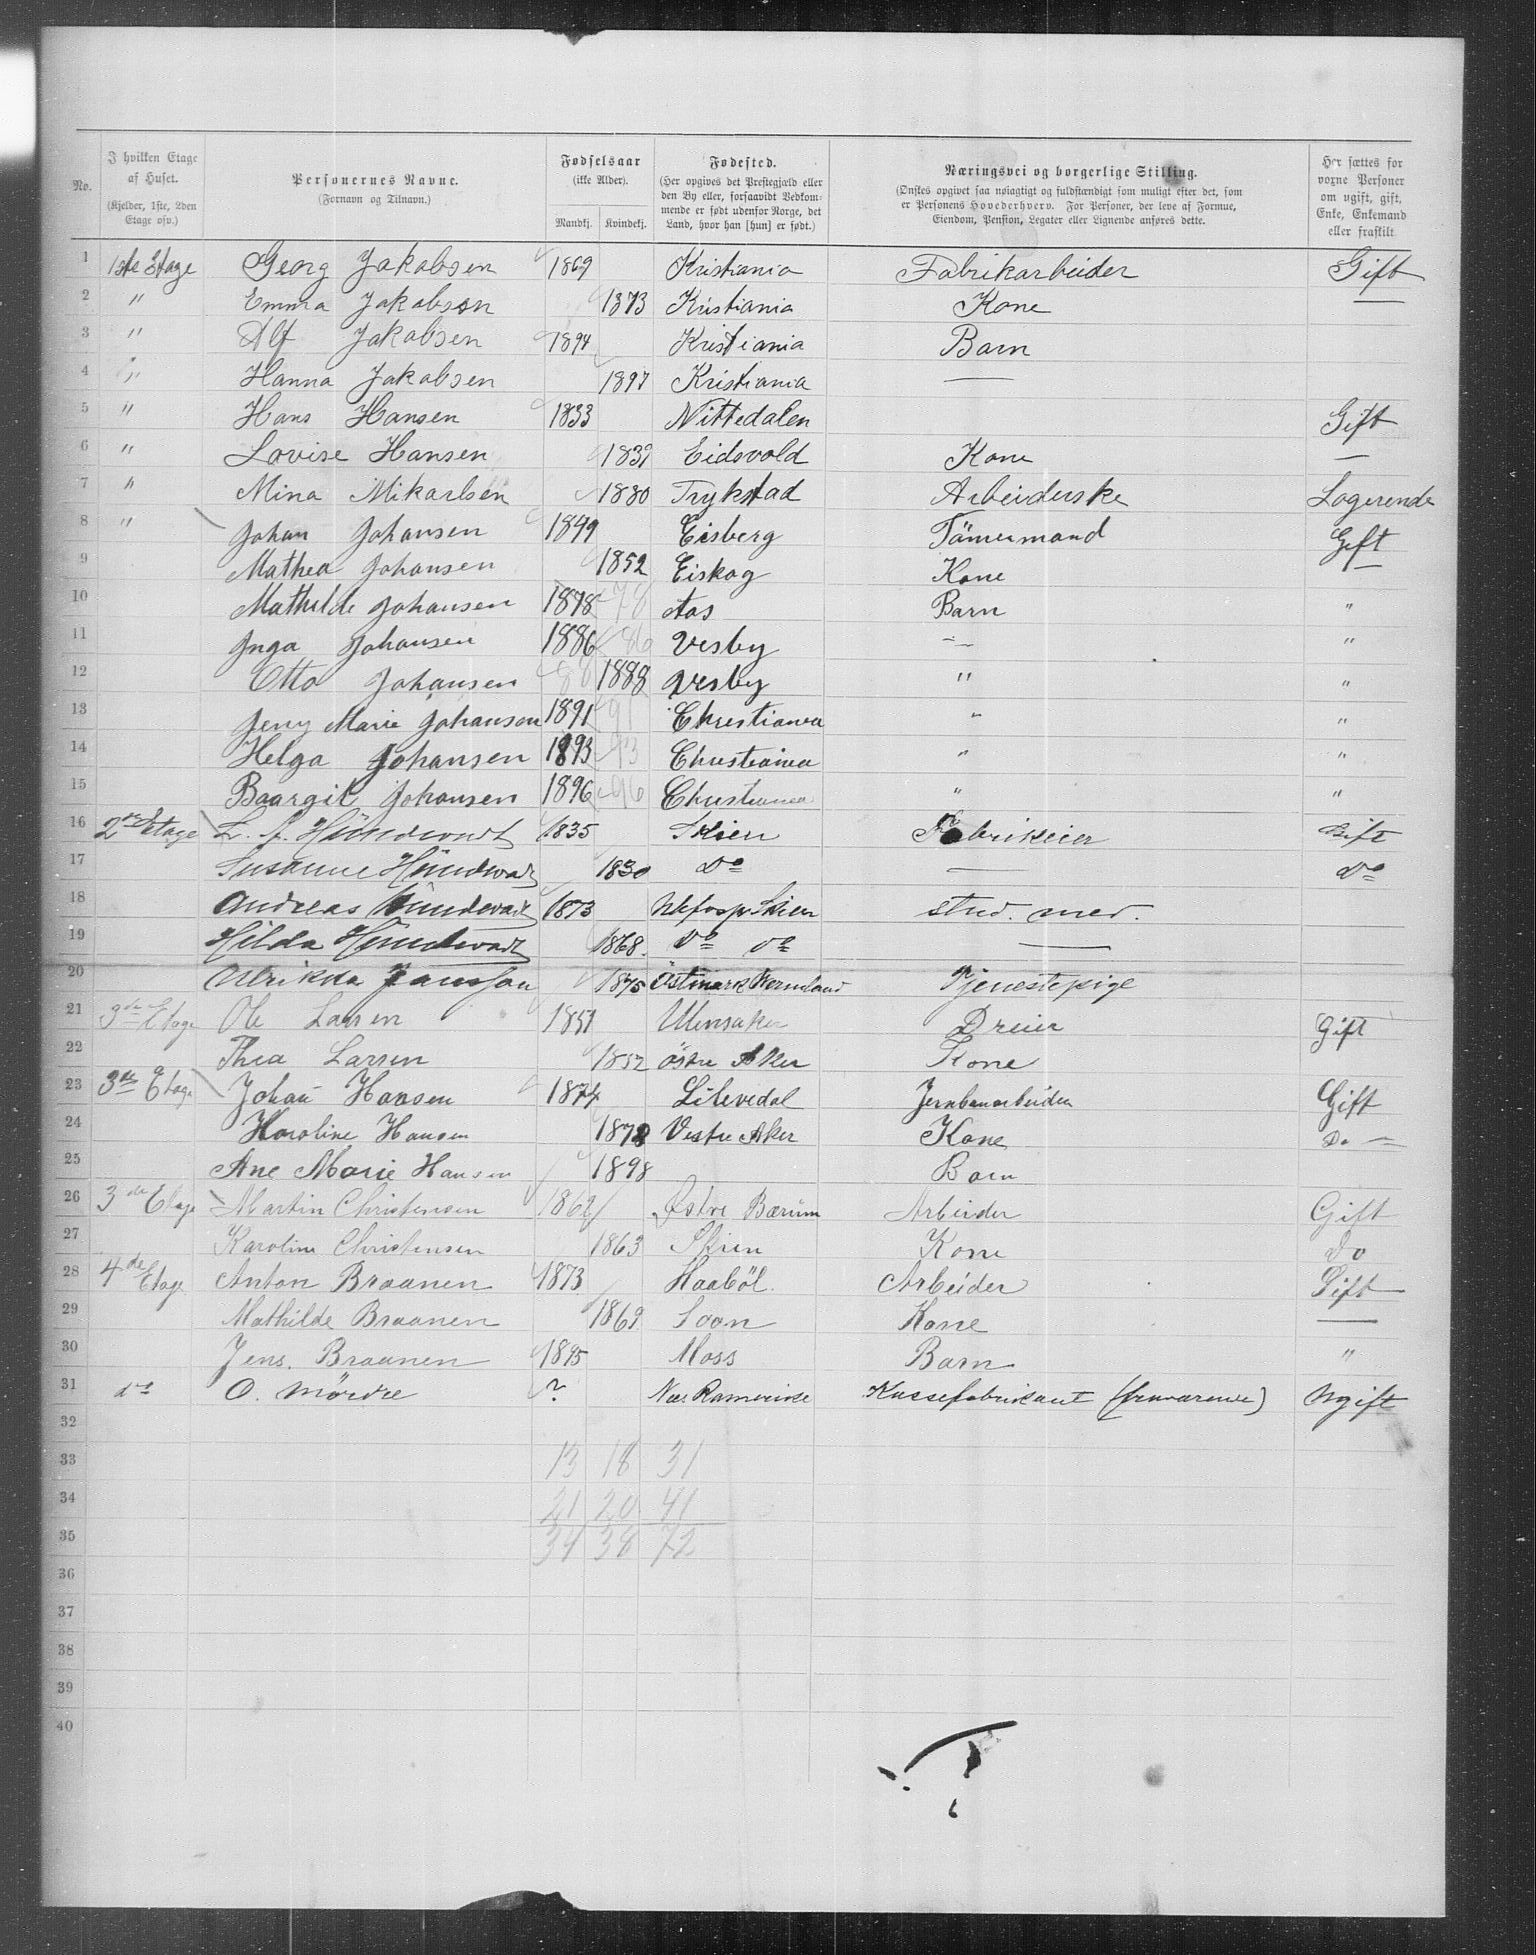 No.
I hvilken Etage af Huset. (Kjelder, 1ste, 2den Etage osv.)
Personernes Navne. (Fornavn og Tilnavn.)
Fødselsaar (ikke Alder). Mandkj. Kvindekj.
Fødested. (Her opgives det Prestegjæld eller den By eller, forsaavidt Vedkommende er født udenfor Norge, det Land, hvor han [hun] er født.)
Næringsvei og borgerlige Stilling. (Ønskes opgivet saa nøiagtigt og fuldstændigt som muligt efter det, som er Personens Hovederhverv. For Personer, der leve af Formue, Eiendom, Pension, Legater eller Lignende anføres dette.
Her sættes for voxne Personer om ugift, gift, Enke, Enkemand eller fraskilt.
1 1ste Etage Georg Jakobsen 1869 Kristiania Fabrikarbeider Gift
2 " Emma Jakobsen 1873 Kristiania Kone —
3 " Alf Jakobsen 1894 Kristiania Barn
4 " Hanna Jakobsen 1897 Kristiania —
5 " Hans Hansen 1833 Nittedalen Gift
6 " Lovise Hansen 1839 Eidsvold Kone —
7 " Mina Mikarlsen 1880 Trykstad Arbeiderske Logerende
8 " Johan Johansen 1849 Eisberg Tömermand Gift
9 Mathea Johansen 1852 Eiskog Kone —
10 Mathilde Johansen 1878 78 Aas Barn "
11 Inga Johansen 1886 86 Vesby — "
12 Otto Johansen 88 1888 Vesby " "
13 Jeny Marie Johansen 1891 91 Christiania " "
14 Helga Johansen 1893 93 Christiania " "
15 Baargit Johansen 1896 96 Christiania " "
16 2den Etage L. J. Hündwadt 1835 Skien Fabrikeier Gift
17 Susanne Hündwadt 1830 do — do
18 Andreas Hündwadt 1873 Skien stud. med.
19 Hilda Hündwadt 1868. do do —
20 Ulrikka Jansson 1875 Östmark Wermland Tjenestepige
21 3de Etage Ole Larsen 1851 Ulensaker Dreier Gift
22 Thea Larsen 1852 östre Aker Kone
23 3die Etage Johan Hansen 1874 Litevedal Jernbanarbeider Gift
24 Karoline Hansen 1878 Vestre Aker Kone Do —
25 Ane Marie Hansen 1898 Barn
26 3de Etage Martin Christensen 1862 Østre Bærüm Arbeider Gift
27 Karoline Christensen 1863 Skien Kone do
28 4de Etage Anton Braanen 1873 Haaböl. Arbeider Gift
29 Mathilde Braanen 1869 Soon Kone —
30 Jens. Braanen 1895 Moss Barn "
31 do O. Mördre ? Nes Romerike Kassefabrikant (fraværende) Ugift
32
33 13 18 31
34 21 20 41
35 34 38 72
36
37
38
39
40